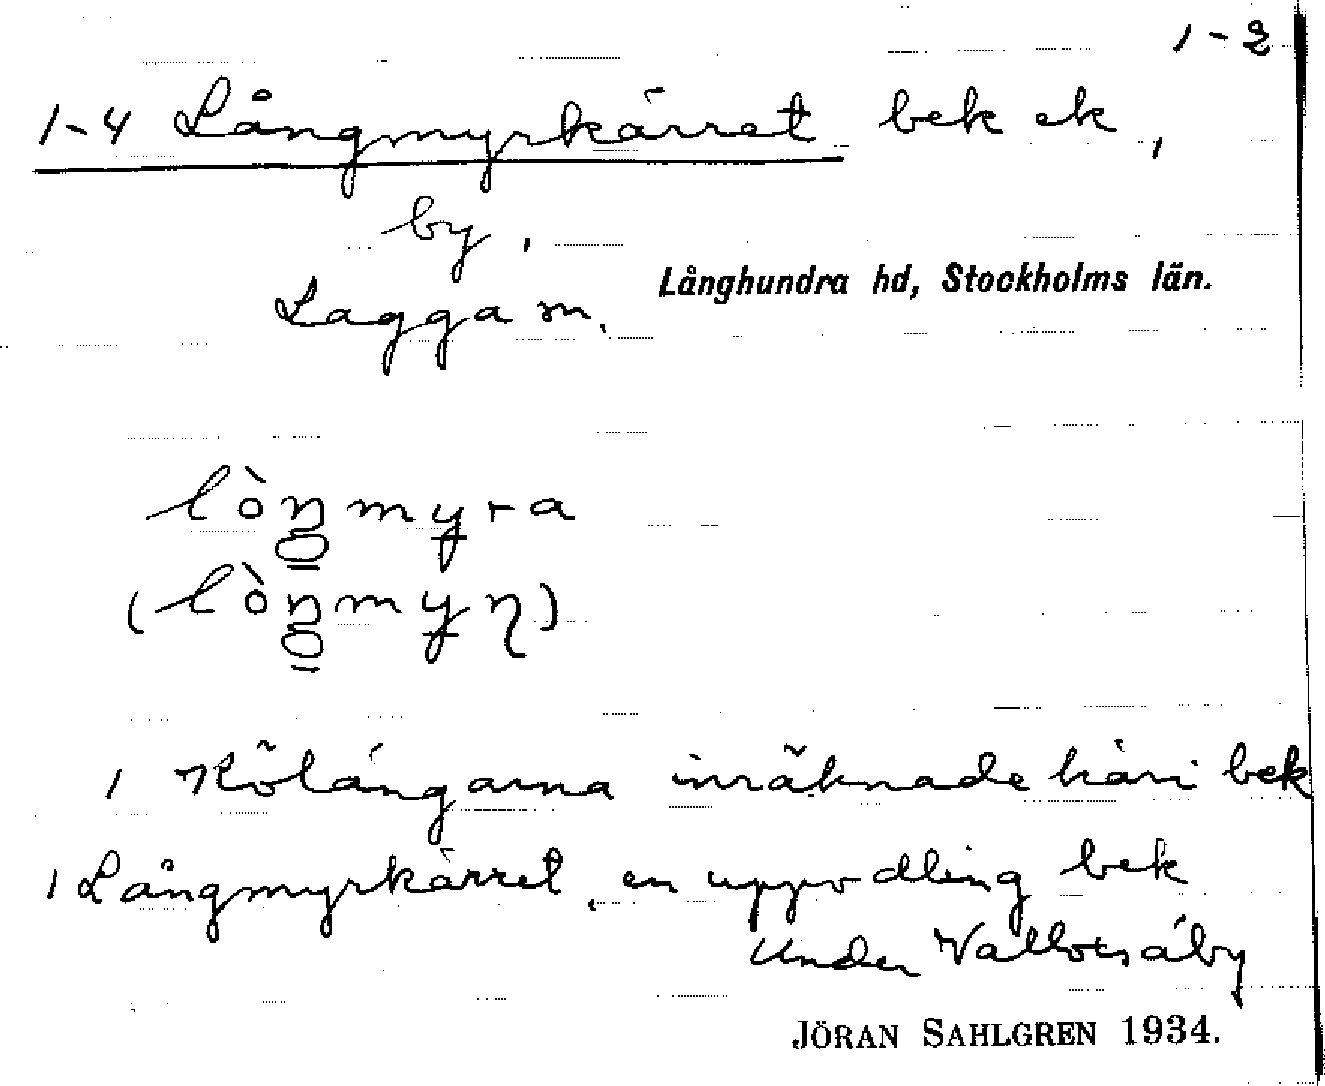 1-2
1-4 Långmyrkärret bek ek,
by,
Lagga sn. Långhundra hd, Stockholms län.
lòŋmyra
(lòŋmyɳ)
1 Kölängarna inräknade häri bek
1 Långmyrkärret, en uppodling bek
under
JÖRAN SAHLGREN 1934.